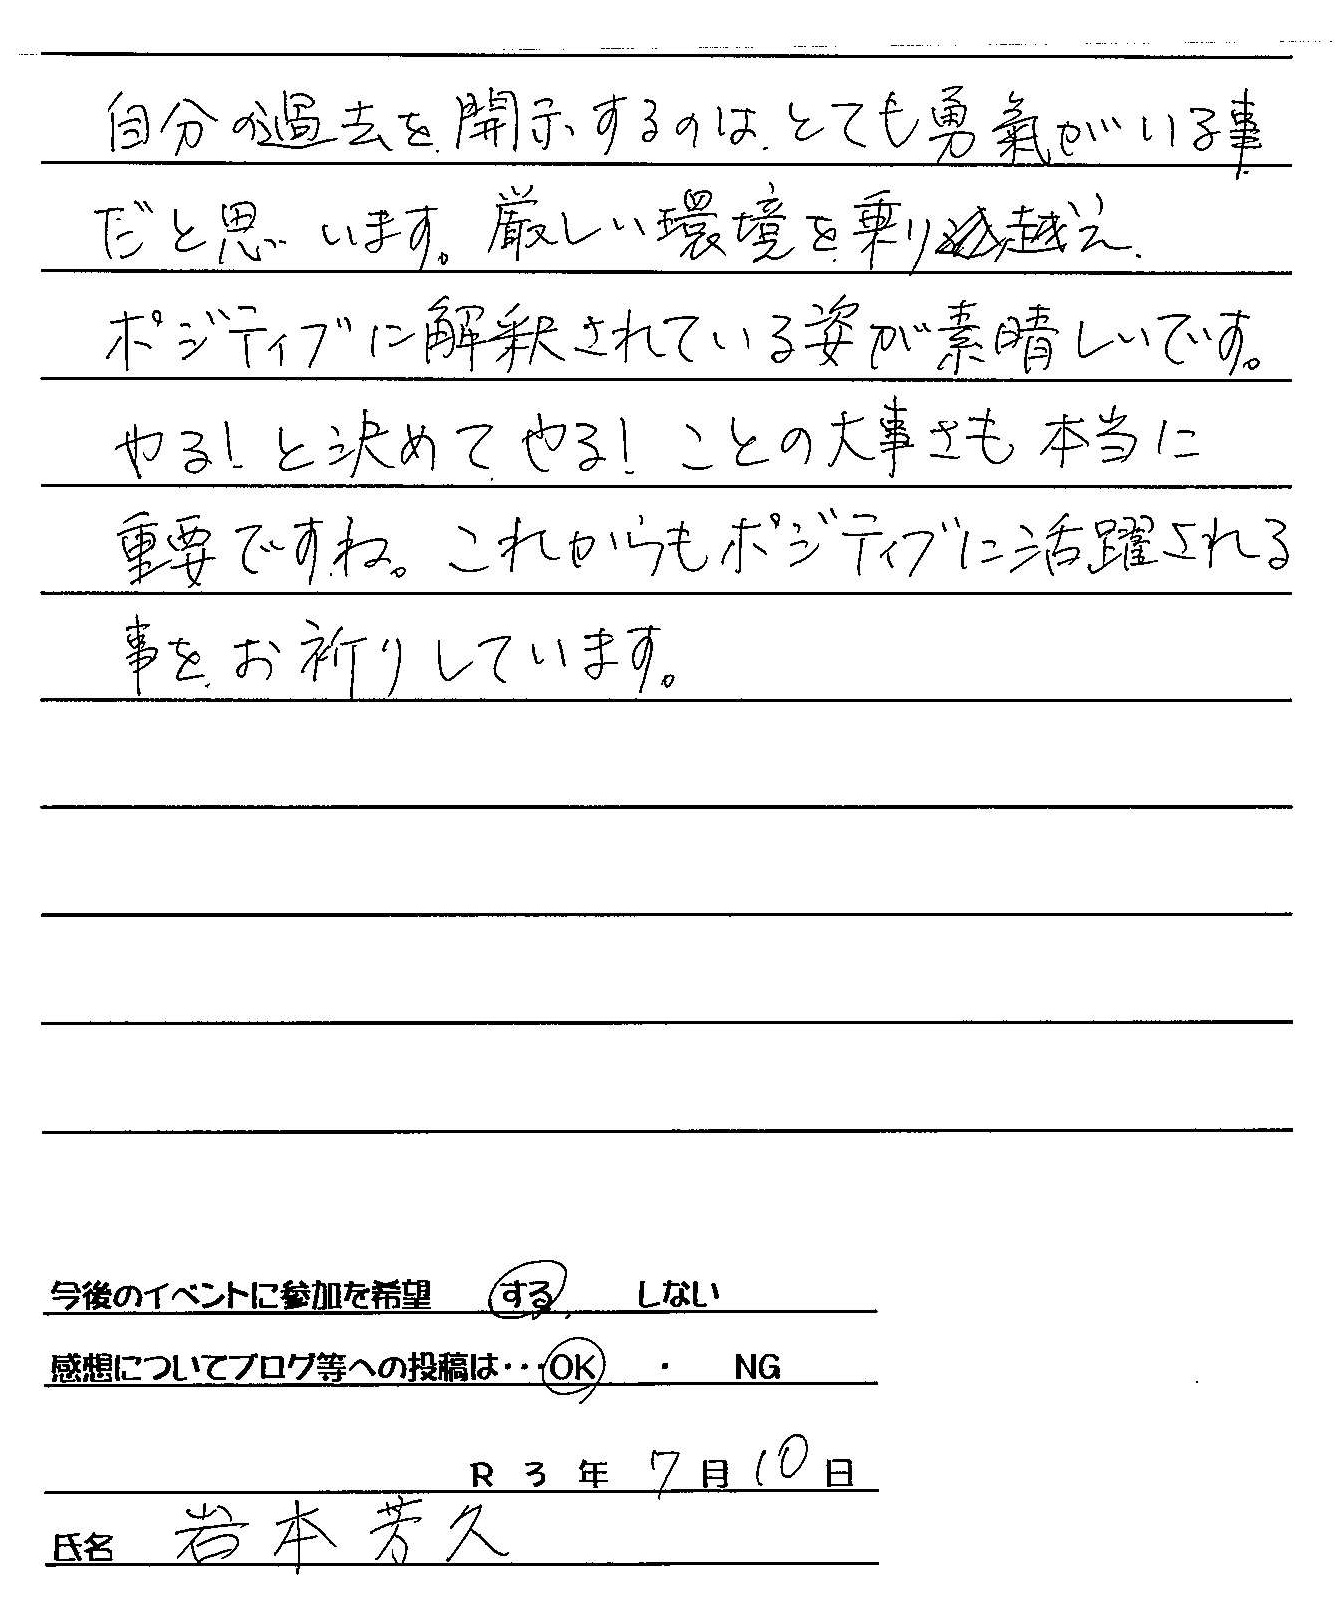 自分の過去を開示するのは、とても勇氣がいる事
だと思います。厳しい環境を乗り越え、
ポジティブに解釈されている姿が素晴しいです。
やる!と決めてやる!ことの大事さも本当に
重要ですね。これからもポジティブに活躍される
事をお祈りしています。
今後のイベントに参加を希望 する しない
感想についてブログ等への投稿は・・・OK ・ NG
R 3 年 7 月 10 日
氏名 岩本芳久